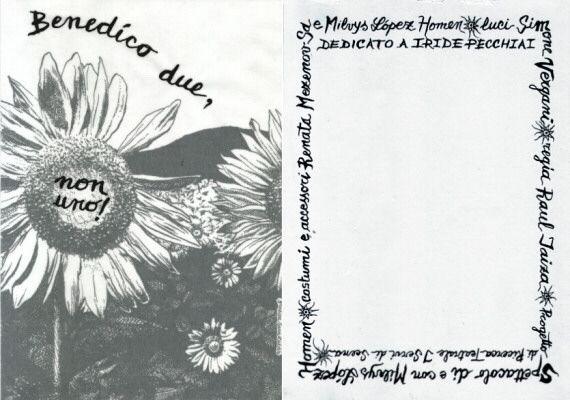 Benedico due,
non
uno!
Spettacolo di e con Milvys López
Homen costumi e accessori Renata Mezenov-Sa
e Milvys López Homen luci Sim
one Vergani regia Raul Iaiza Progetto
di Ricerca Teatrale I Servi di Scena
DEDICATO A IRIDE PECCHIAI